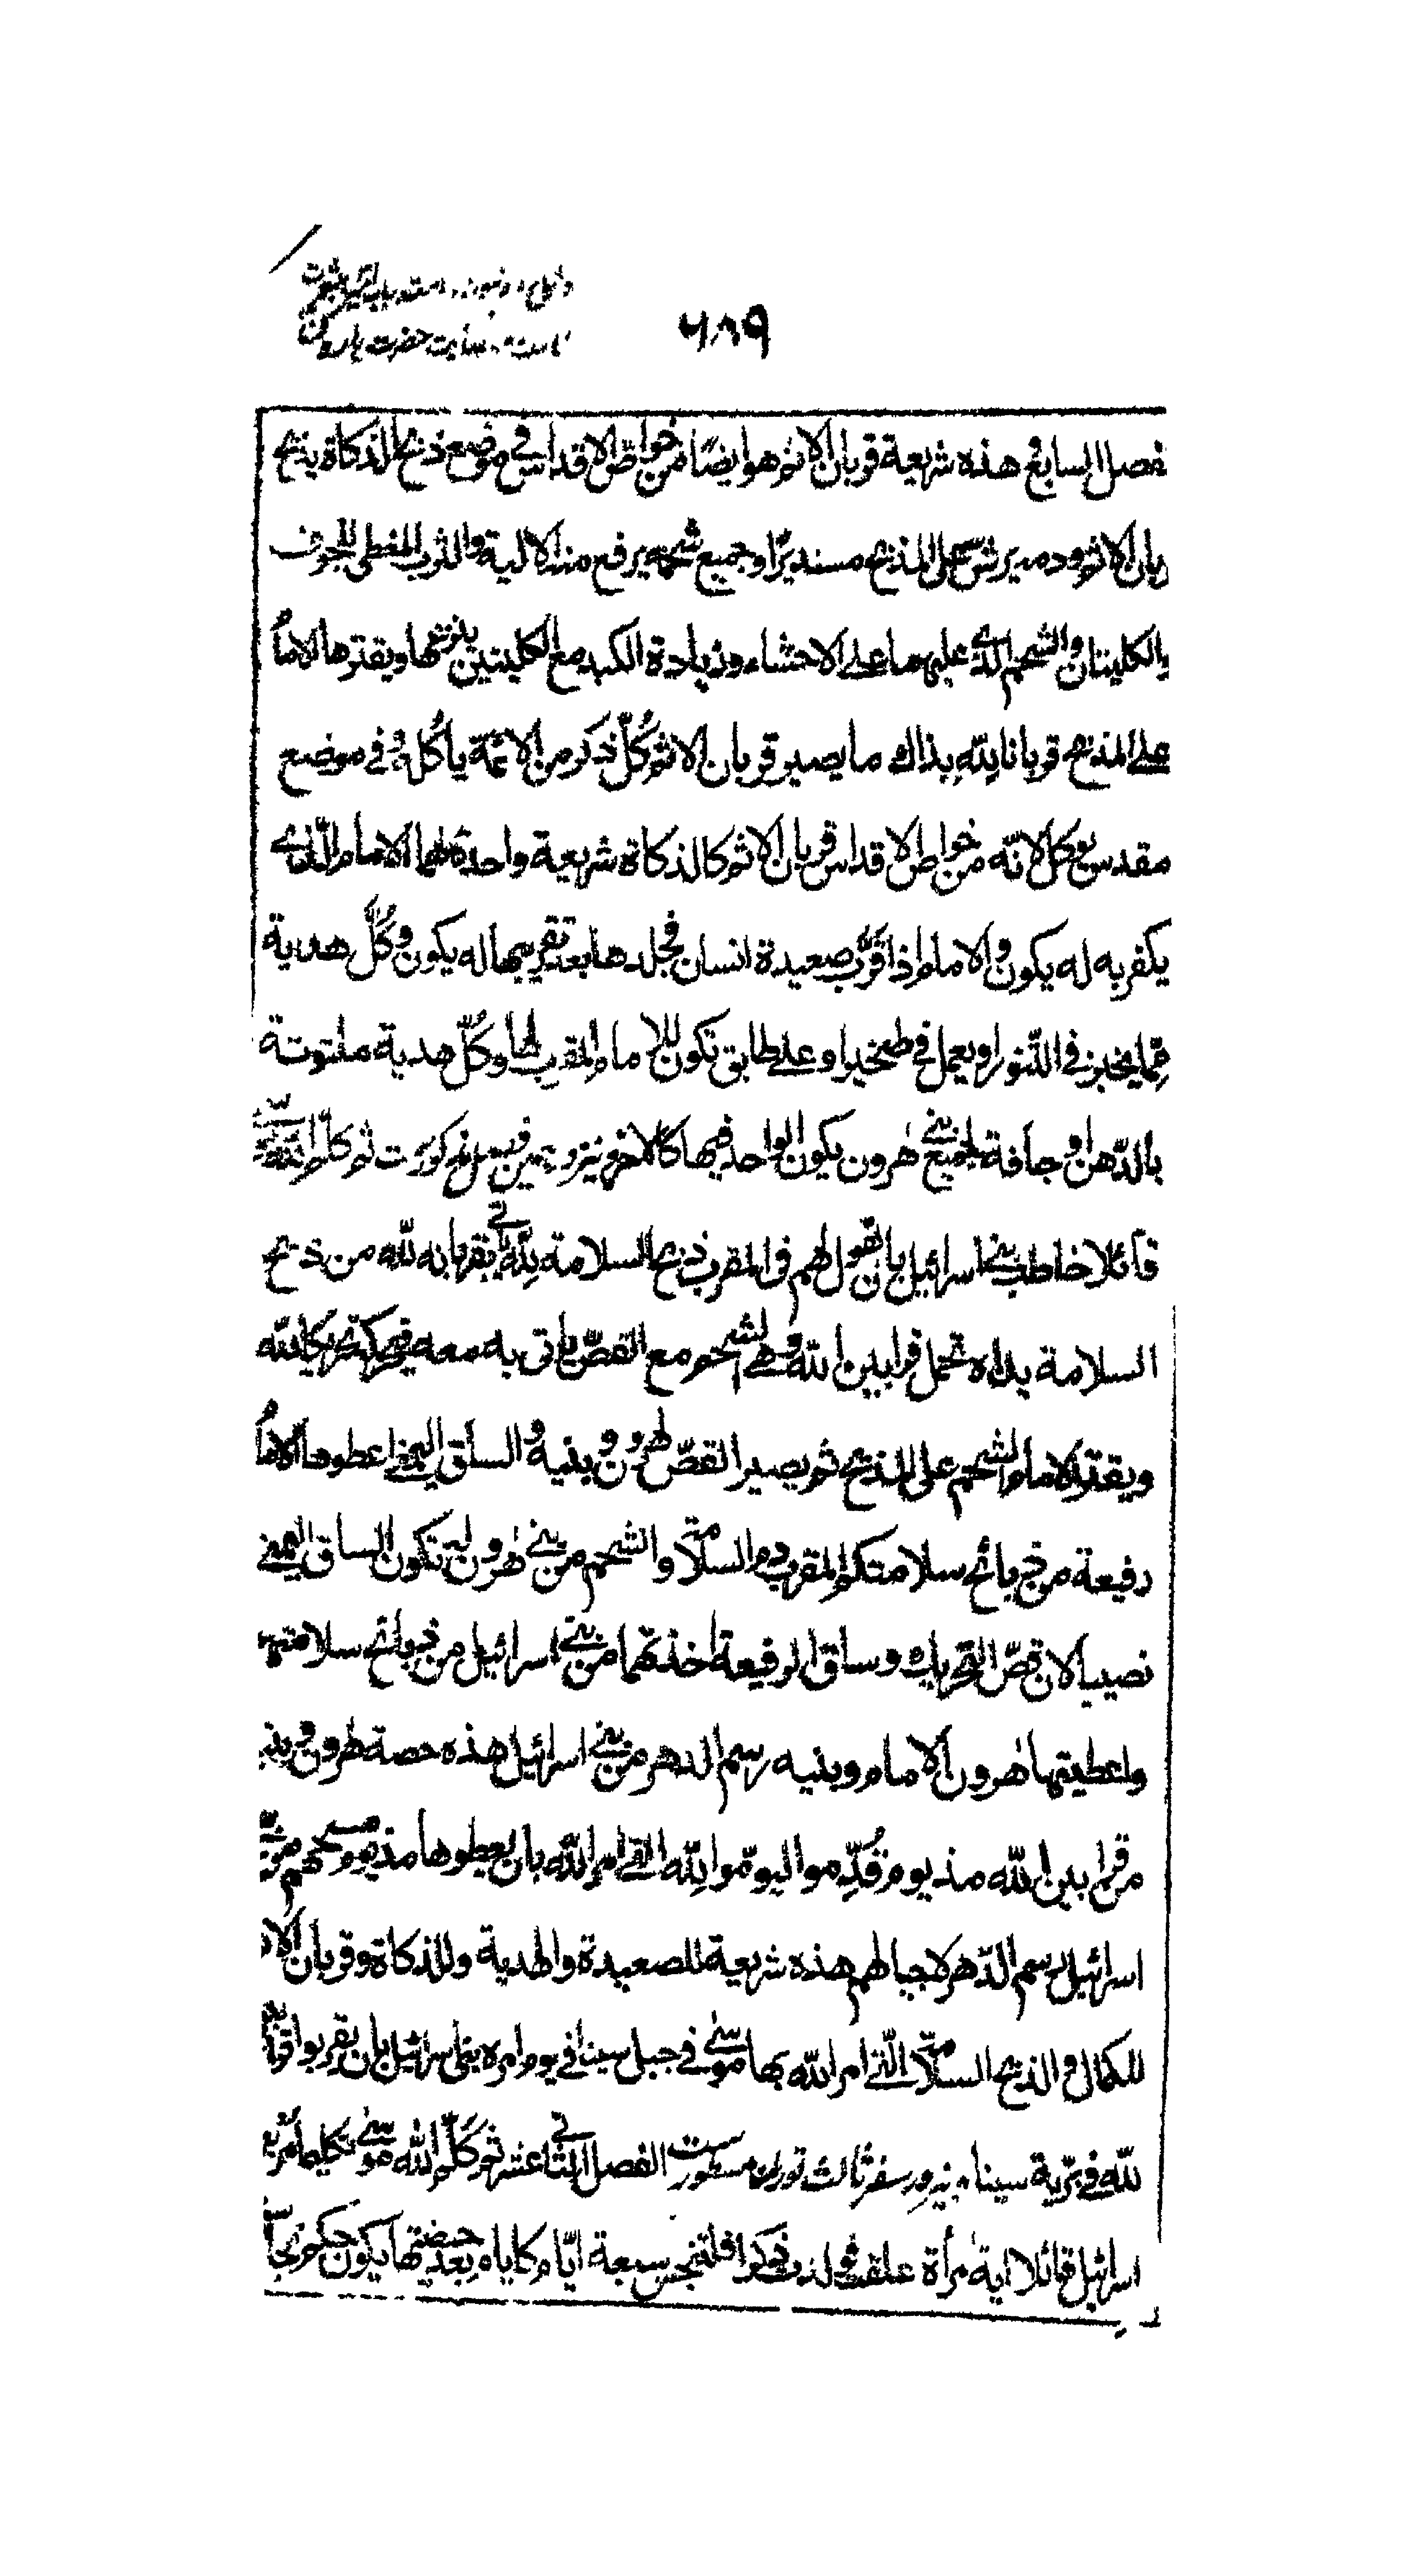 ۶۸۹
حضرت هارون
فصل السابع هذه شريعة قربان الاثم هو ايضًا من خواصّ الاقداس في موضع ذبح الذكاة يذبح
ربان الاثم ودمه يرشّ على المذبح مستديرًا وجميع شحمه يرفع منه الالية والثرب المغطى للجوف
والكليتان والشحم الذى عليهما على الاحشاء وزيادة الكبد مع الكليتين ينزعها ويقترها الامام
على المذبح قربانا لِلّهِ بذاك ما يصير قربان الاثم كُلّ ذكر من الائمّة يأكُله في موضع
مقدس يوكل لانّه من خواص الاقداس قربان الاثم كالذكاة شريعة واحدة لهما الامام الّذى
يكفر به له يكون والامام اذا قرّب صعيدة انسان فجلدها بعد تقريبها له يكون وكُلّ هدية
ممّا يخبز في التنور او يعمل في طنجير او على طابق تكون للامام المقرب لها وكُلّ هدية ملتوتة
بالدّهن او جافة لجميع بنى هٰرون يكون الواحد فيها كالاخر ونيز در همين فصل مذكورست ثم كلّم الله موسى
قائلا خاطب بنى اسرائيل بان تقول لهم فى المقرب ذبح السلامة لِلّه ياتى بقربانه لله من ذبح
السلامة يداه تحمل قرابين الله وهى الشحوم مع القصّ ياتى به معه فيحركه تحريكا لله
ويقتر الامام الشحم على المذبح ثم يصير القصّ لهرون وبنيه والساق اليمنى اعطوها الامام
رفيعة من ذبائح سلامتكم المقرب دم السلامة والشحم من بنى هٰرون له تكون الساق اليمنى
نصيبا لان قصّ التحريك وساق الرفيعة اخذتهما من بنى اسرائيل من ذبائح سلامتهم
واعطيتهما هٰرون الامام وبنيه رسم الدهر من بنى اسرائيل هذه حصة هٰرون وبنيه
من قرابين الله مذ يوم قُدّموا ليومّوا لِلّه التى امر الله بان يعطوها مذ يوم مسحهم من بنى
اسرائيل رسم الدّهر لاجيالهم هذه شريعة للصعيدة والهدية وللذكاة وقربان الاثم
للكمال والذبح السلامة الّتى امر الله بها موسى في جبل سينا في يوم امره بنى اسرائيل بان يقربوا قرابينهم
للّه في برّية سينا ونيز در سفر ثالث توراة مسطورست الفصل الثانى عشر ثم كَلّم الله موسى تكليما مُر بنى
اسرائيل قائلا اية امرأة علقت فولدت ذكرا فلتنجس سبعة ايّام كايام بعد حيضتها يكون حكم نجاستها